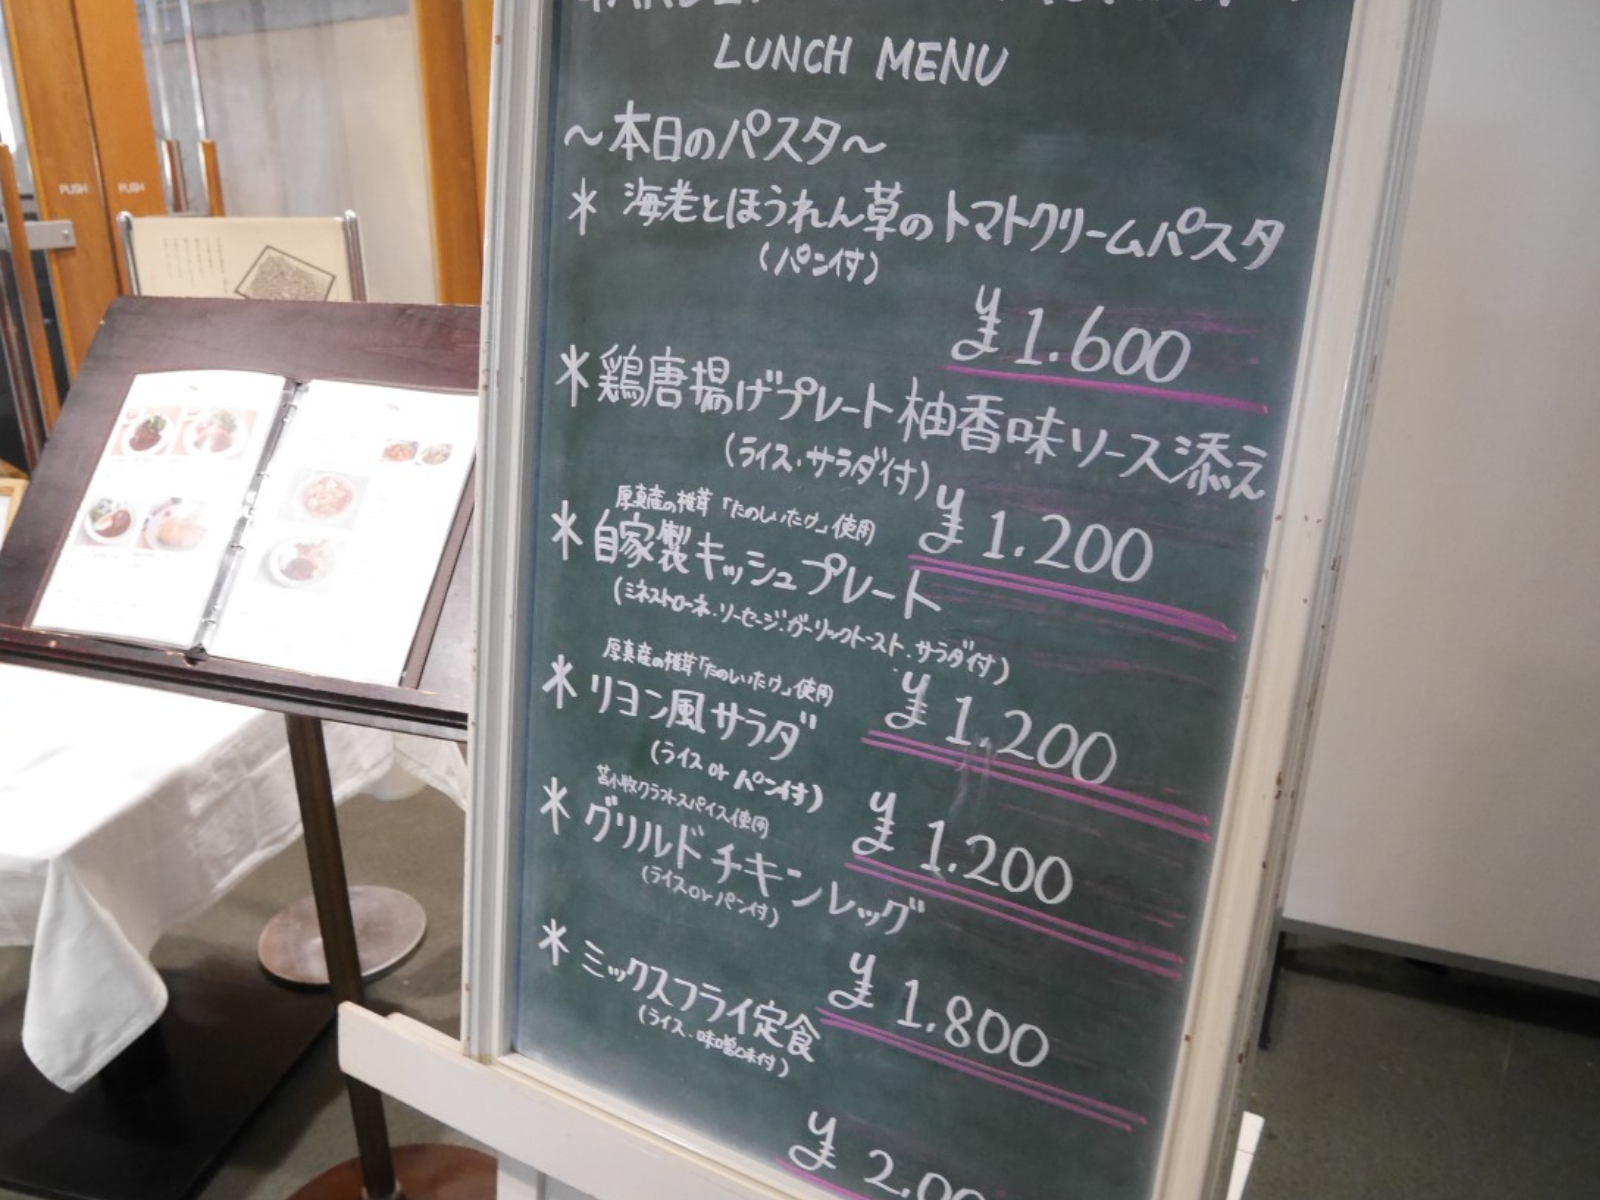 LUNCH MENU
～本日のパスタ～
＊ 海老とほうれん草のトマトクリームパスタ
(パン付)
¥1.600
＊鶏唐揚げプレート柚香味ソース添え
(ライス・サラダ付)
¥1.200
厚真産の椎茸「たのしいたけ」使用
＊自家製キッシュプレート
(ミネストローネ・ソーセージ・ガーリックトースト・サラダ付)
¥1.200
厚真産の椎茸「たのしいたけ」使用
＊リヨン風サラダ
(ライス or パン付)
¥1.200
苫小牧クラフトスパイス使用
＊グリルドチキンレッグ
(ライス or パン付)
¥1.800
＊ミックスフライ定食
(ライス・味噌汁付)
¥2.00
PUSH
PUSH